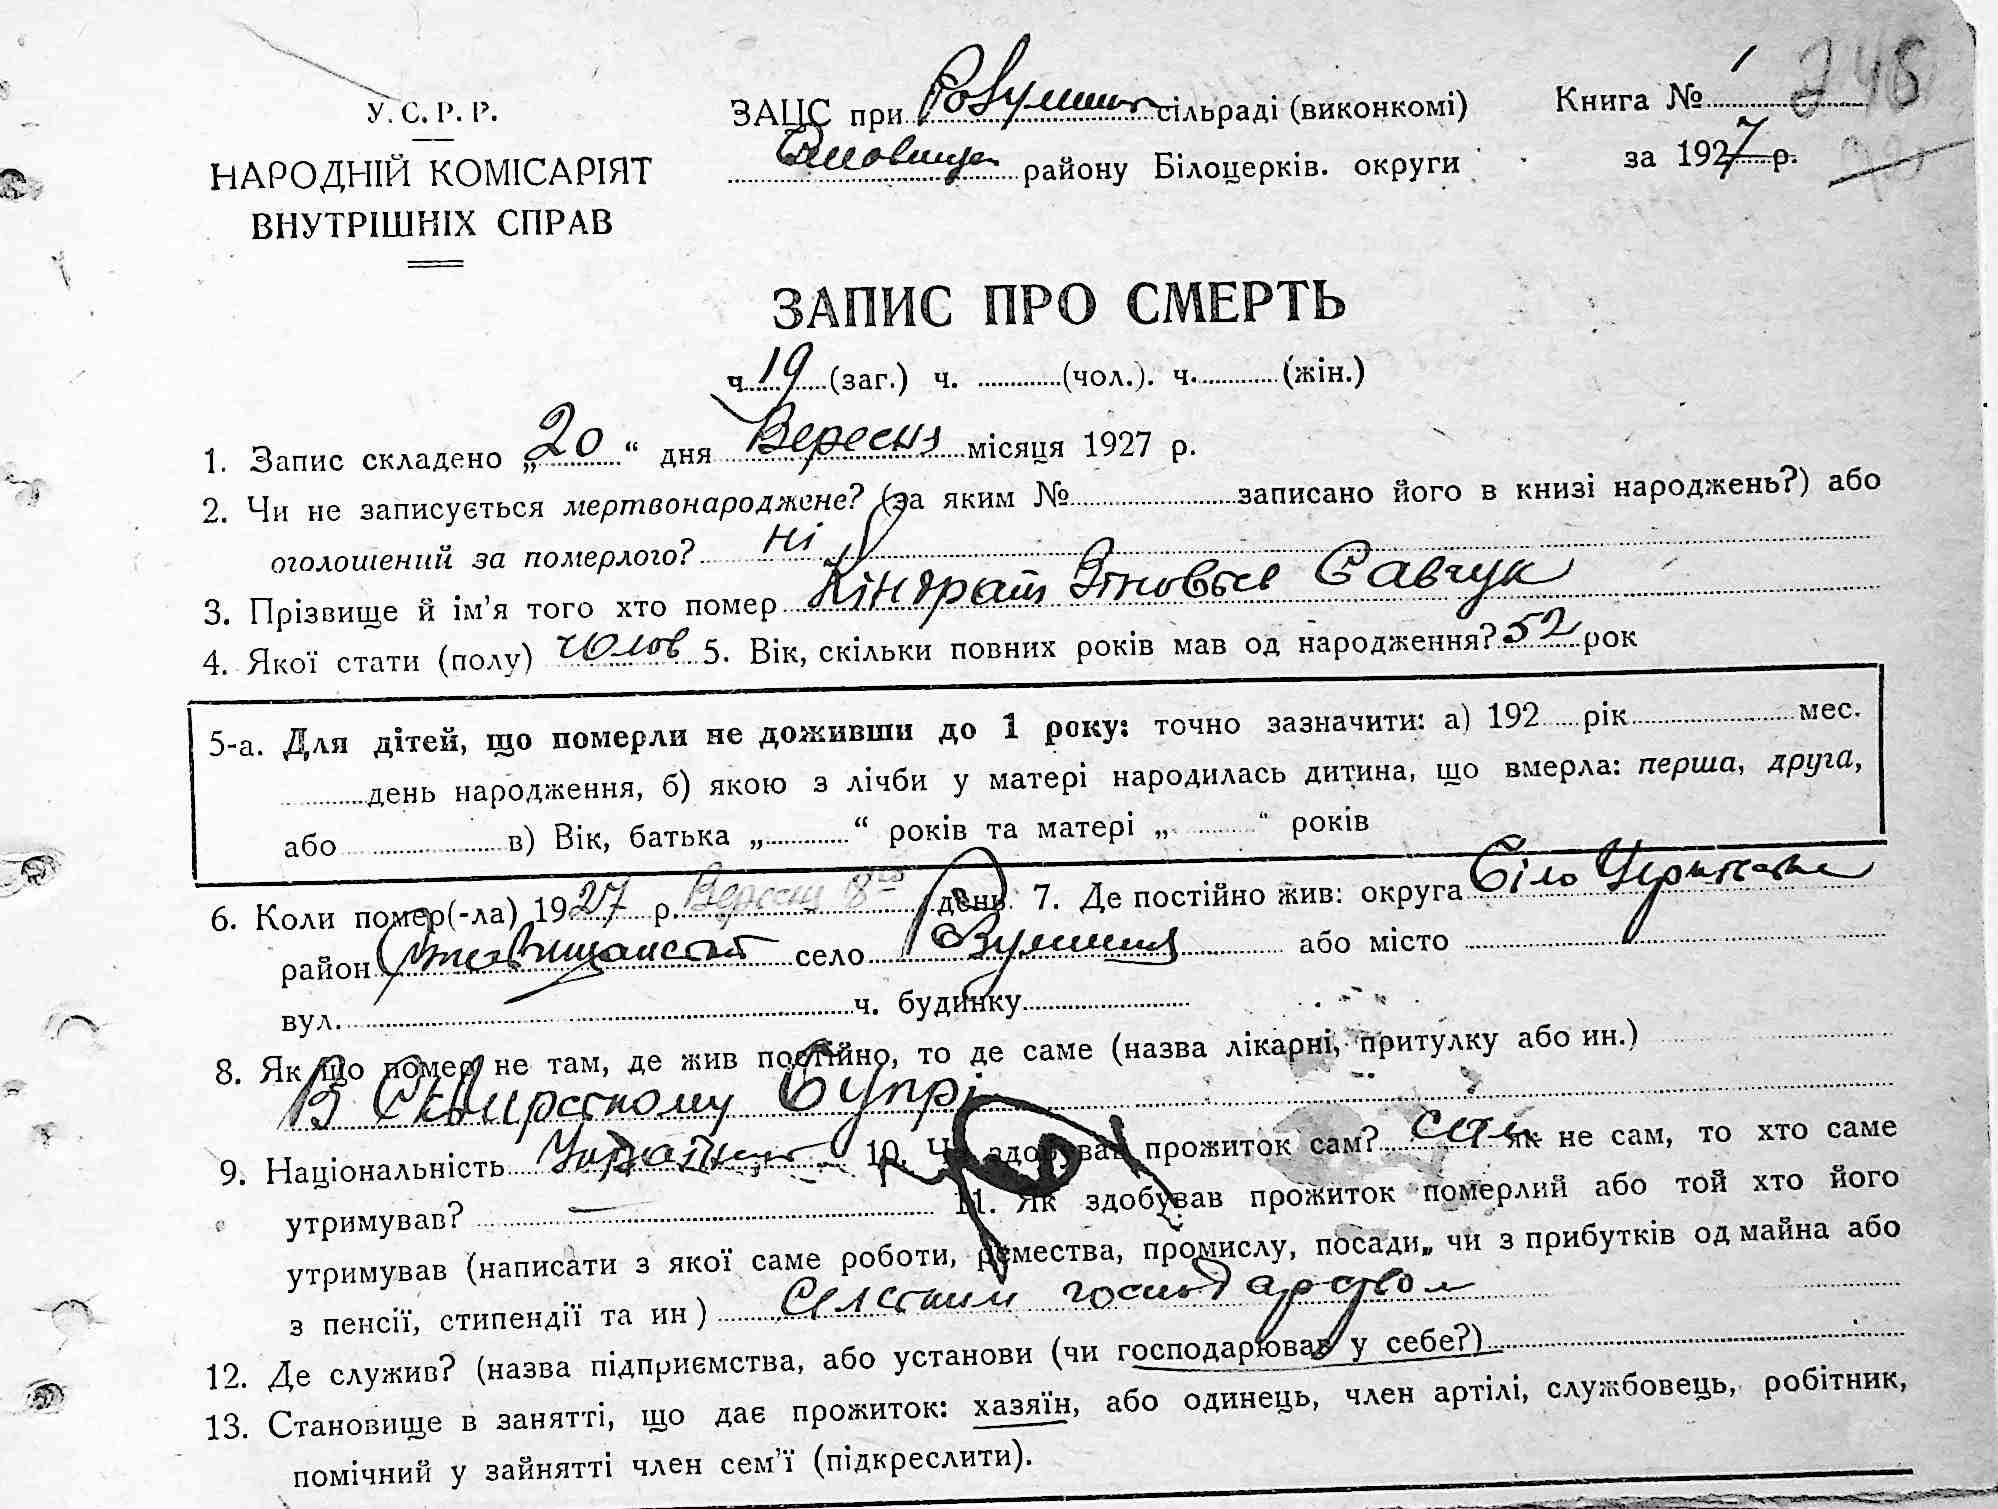 У. С. Р. Р.
НАРОДНІЙ КОМІСАРІЯТ
ВНУТРІШНІХ СПРАВ
ЗАЦС при сільраді (виконкомі)
району Білоцерків. округи
Книга № 1
за 1927 р.
246
ЗАПИС ПРО СМЕРТЬ
ч. 19 (заг.) ч. (чол.). ч. (жін.)
1. Запис складено „20“ дня Вересня місяця 1927 р.
2. Чи не записується мертвонароджене? (за яким № записано його в книзі народжень?) або
оголошений за померлого? Ні
3. Прізвище й ім'я того хто помер Кіндрат Зіновьєв Савчук
4. Якої стати (полу) чолов 5. Вік, скільки повних років мав од народження? 52 рок
5-а. Для дітей, що померли не доживши до 1 року: точно зазначити: а) 192 рік мес.
день народження, б) якою з лічби у матері народилась дитина, що вмерла: перша, друга,
або в) Вік, батька „ “ років та матері „ “ років
6. Коли помер(-ла) 1927 р. Вересня 8 день 7. Де постійно жив: округа Біло Церківська
район село або місто
вул. ч. будинку
8. Як що помер не там, де жив постійно, то де саме (назва лікарні, притулку або ин.)
В Сквирському Бупрі
9. Національність 10. Чи здобував прожиток сам? сам як не сам, то хто саме
утримував? — 11. Як здобував прожиток померлий або той хто його
утримував (написати з якої саме роботи, ремества, промислу, посади„ чи з прибутків од майна або
з пенсії, стипендії та ин ) господарством
12. Де служив? (назва підприємства, або установи (чи господарював у себе?)
13. Становище в занятті, що дає прожиток: хазяїн, або одинець, член артілі, службовець, робітник,
помічний у зайнятті член сем'ї (підкреслити).